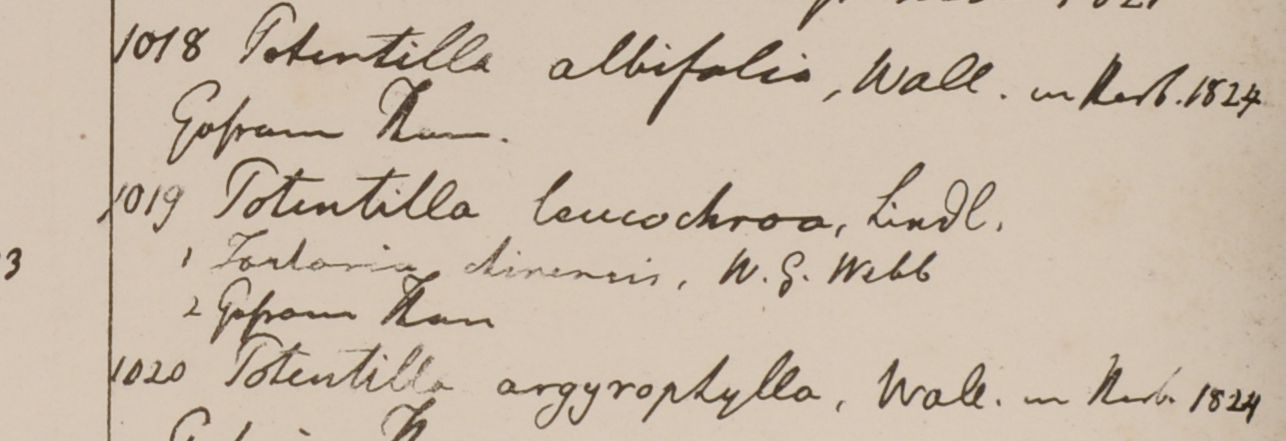 1821
1018 Potentilla albifolia, Wall. in Herb. 1824
Gosram Than.
1019 Potentilla leucochroa, Lindl.
3
1 Tartaria chinensis, W. G. Webb
2 Gosram Than
1020 Potentilla argyrophylla, Wall. in Herb. 1824